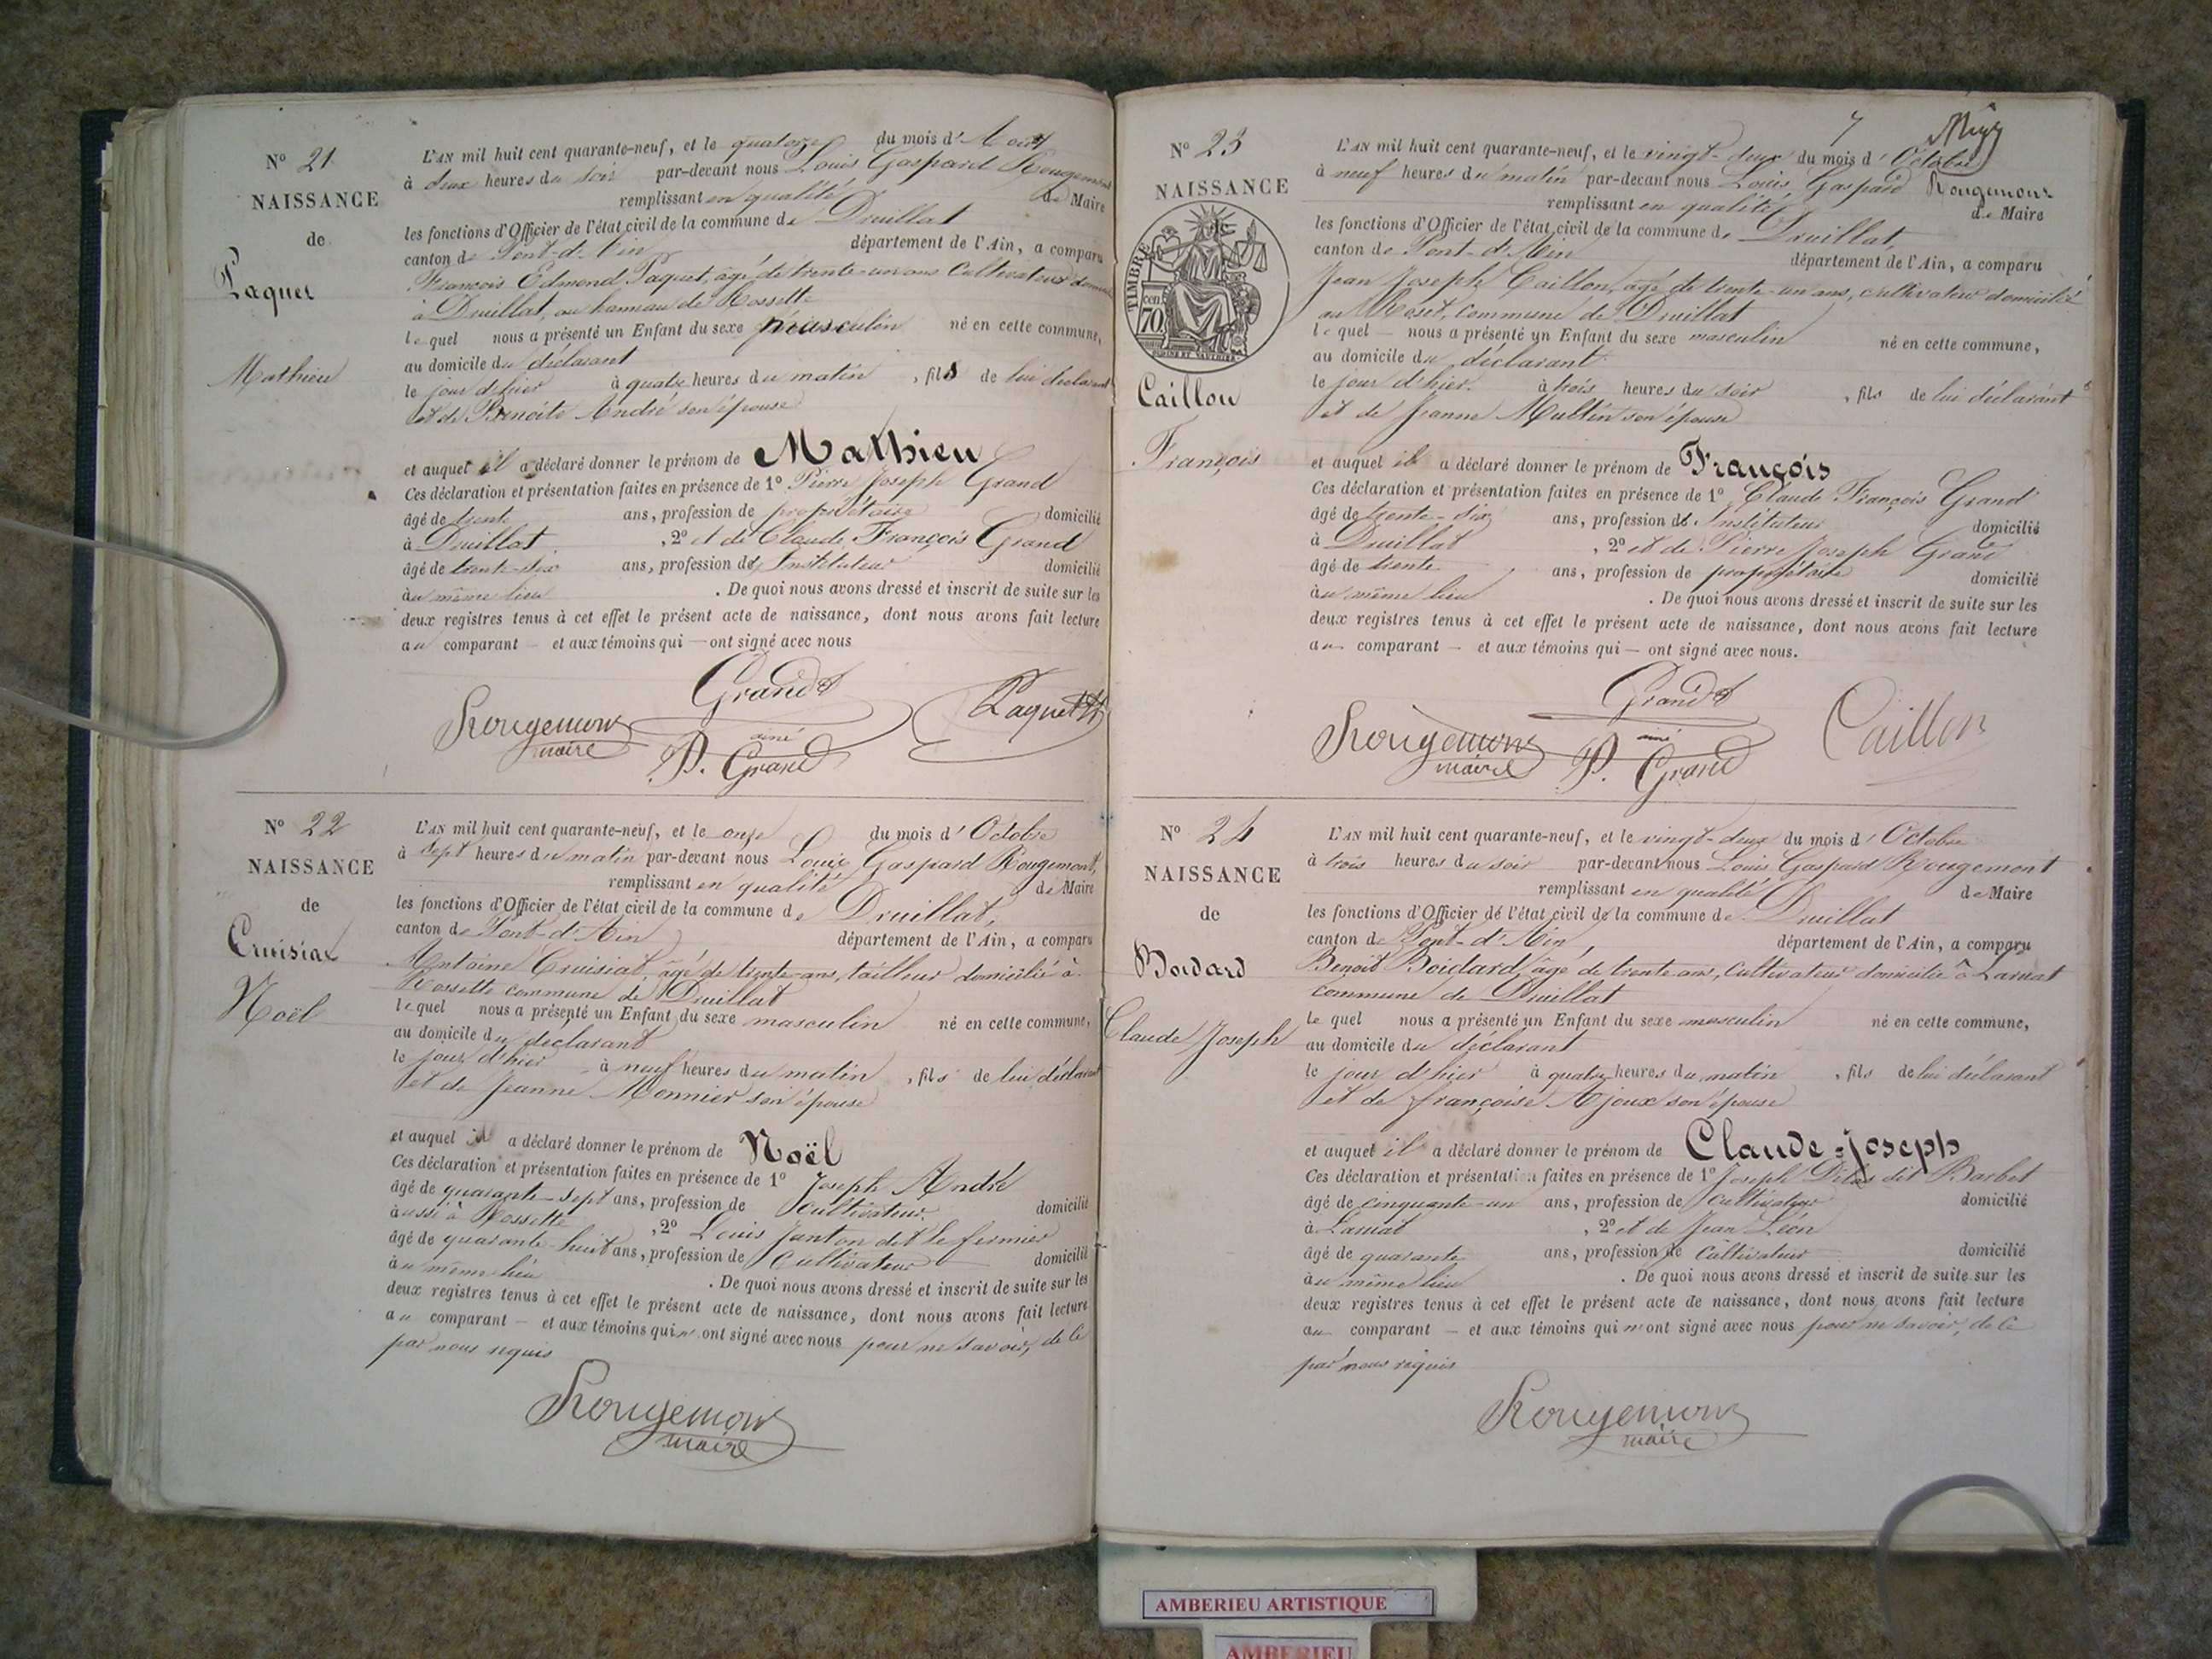 N° 21
NAISSANCE
de
Paquet
Mathieu
L'AN mil huit cent quarante-neuf, et le quatorze du mois d'Août
à deux heures du soir par-devant nous Louis Gaspard Rougemont
remplissant en qualité de Maire
les fonctions d'Officier de l'état civil de la commune de Druillat
canton de Pont-d'Ain département de l'Ain, a comparu
François Edmond Paquet, âgé de trente-un ans Cultivateur
à Druillat, au hameau de Rossette
lequel nous a présenté un Enfant du sexe masculin né en cette commune,
au domicile du déclarant
le jour d'hier à quatre heures du matin, fils de lui déclarant
et de Benoite André son épouse
et auquel il a déclaré donner le prénom de Mathieu
Ces déclaration et présentation faites en présence de 1° Pierre Joseph Grand
âgé de trente ans, profession de propriétaire domicilié
à Druillat, 2° et de Claude François Grand
âgé de trente-six ans, profession de Instituteur domicilié
au même lieu. De quoi nous avons dressé et inscrit de suite sur les
deux registres tenus à cet effet le présent acte de naissance, dont nous avons fait lecture
au comparant — et aux témoins qui — ont signé avec nous
Grand
Rougemont
maire
ainé
P. Grand
Paquet
N° 22
NAISSANCE
de
Cruisiat
Noël
L'AN mil huit cent quarante-neuf, et le onze du mois d'Octobre
à sept heures du matin par-devant nous Louis Gaspard Rougemont,
remplissant en qualité de Maire
les fonctions d'Officier de l'état civil de la commune de Druillat,
canton de Pont-d'Ain département de l'Ain, a comparu
Antoine Cruisiat, âgé de trente ans, tailleur domicilié à
Rossette commune de Druillat
lequel nous a présenté un Enfant du sexe masculin né en cette commune,
au domicile du déclarant
le jour d'hier à neuf heures du matin, fils de lui déclarant
et de Jeanne Monnier son épouse
et auquel il a déclaré donner le prénom de Noël
Ces déclaration et présentation faites en présence de 1° Joseph André
âgé de quarante-sept ans, profession de Cultivateur domicilié
aussi à Rossette, 2° Louis Janton dit le fermier
âgé de quarante-huit ans, profession de Cultivateur domicilié
au même lieu. De quoi nous avons dressé et inscrit de suite sur les
deux registres tenus à cet effet le présent acte de naissance, dont nous avons fait lecture
au comparant — et aux témoins qui n'ont signé avec nous pour ne savoir, de ce
par nous requis
Rougemont
maire
7
N° 23
NAISSANCE
TIMBRE
70 cen.
Caillon
François
L'AN mil huit cent quarante-neuf, et le vingt-deux du mois d'Octobre
à neuf heures du matin par-devant nous Louis, Gaspard Rougemont
remplissant en qualité de Maire
les fonctions d'Officier de l'état civil de la commune de Druillat,
canton de Pont-d'Ain département de l'Ain, a comparu
Jean Joseph Caillon, âgé de trente-un ans, cultivateur domicilié
au Roset, commune de Druillat
lequel — nous a présenté un Enfant du sexe masculin né en cette commune,
au domicile du déclarant
le jour d'hier à trois heures du soir, fils de lui déclarant
et de Jeanne Multin son épouse
et auquel il a déclaré donner le prénom de François
Ces déclaration et présentation faites en présence de 1° Claude François Grand
âgé de trente-six ans, profession de Instituteur domicilié
à Druillat, 2° et de Pierre Joseph Grand
âgé de trente ans, profession de propriétaire domicilié
au même lieu. De quoi nous avons dressé et inscrit de suite sur les
deux registres tenus à cet effet le présent acte de naissance, dont nous avons fait lecture
au comparant — et aux témoins qui — ont signé avec nous.
Grand
Rougemont
maire
ainé
P. Grand
Caillon
N° 24
NAISSANCE
de
Boidard
Claude Joseph
L'AN mil huit cent quarante-neuf, et le vingt-deux du mois d'Octobre
à trois heures du soir par-devant nous Louis Gaspard Rougemont
remplissant en qualité de Maire
les fonctions d'Officier de l'état civil de la commune de Druillat
canton de Pont-d'Ain département de l'Ain, a comparu
Benoit Boidard, âgé de trente ans, Cultivateur domicilié à Larnat
commune de Druillat
lequel nous a présenté un Enfant du sexe masculin né en cette commune,
au domicile du déclarant
le jour d'hier à quatre heures du matin, fils de lui déclarant
et de françoise Ajoux son épouse
et auquel il a déclaré donner le prénom de Claude-Joseph
Ces déclaration et présentation faites en présence de 1° Joseph dit Barbet
âgé de cinquante-un ans, profession de Cultivateur domicilié
à Larnat, 2° et de Jean Léon
âgé de quarante ans, profession de Cultivateur domicilié
au même lieu. De quoi nous avons dressé et inscrit de suite sur les
deux registres tenus à cet effet le présent acte de naissance, dont nous avons fait lecture
au comparant — et aux témoins qui n'ont signé avec nous pour ne savoir, de ce
par nous requis
Rougemont
maire
AMBERIEU ARTISTIQUE
AMBERIEU